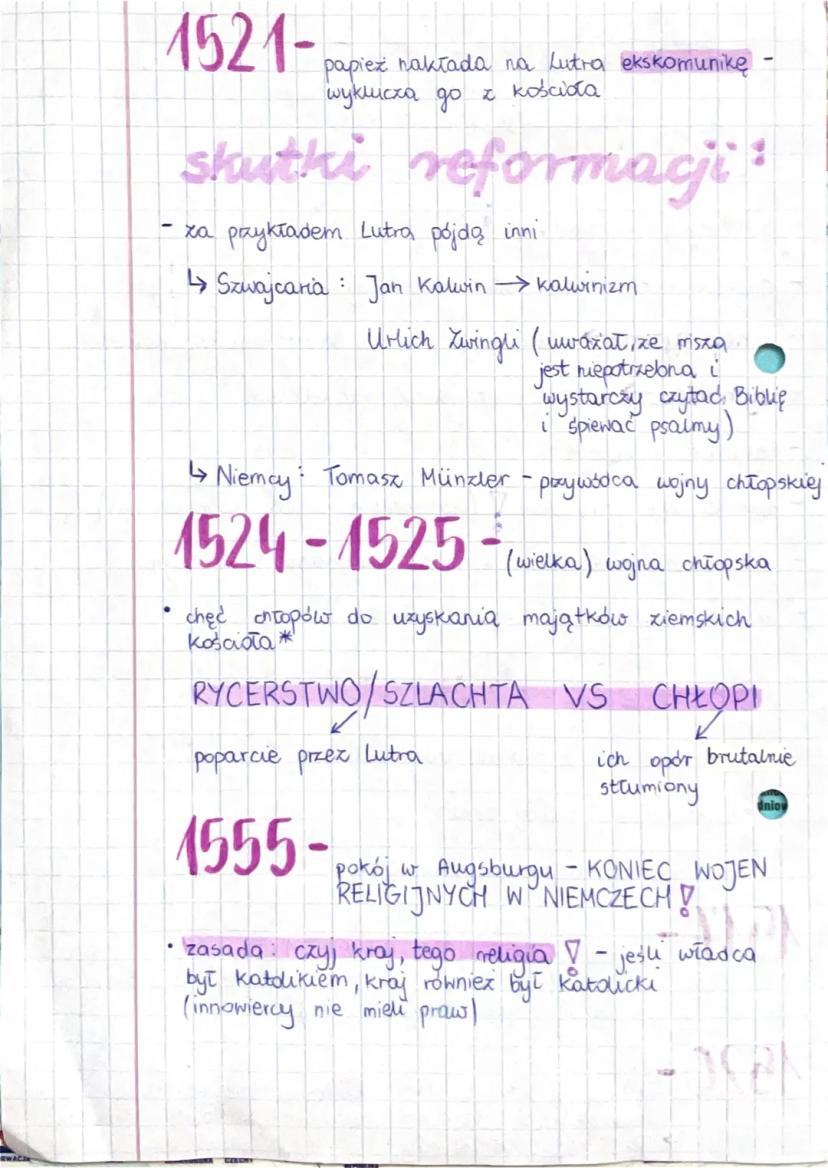 1521-
papież nakłada na Lutra ekskomunikę -
wyklucza go z kościoła
skutki reformacji:
- za przykładem Lutra pójdą inni
↳ Szwajcaria: Jan Kalwin → kalwinizm
Urlich Zwingli (uważał, że msza
jest niepotrzebna i
wystarczy czytać Biblię
i śpiewać psalmy)
↳ Niemcy: Tomasz Münzler - przywódca wojny chłopskiej
1524-1525-
(wielka) wojna chłopska
• chęć chłopów do uzyskania majątków ziemskich
kościoła*
RYCERSTWO/SZLACHTA VS CHŁOPI
poparcie przez Lutra
ich opór brutalnie
stłumiony
dniow
1555-
pokój w Augsburgu - KONIEC WOJEN
RELIGIJNYCH W NIEMCZECH!
• zasada: czyj kraj, tego religia! - jeśli władca
był katolikiem, kraj również był katolicki
(innowiercy nie mieli praw)